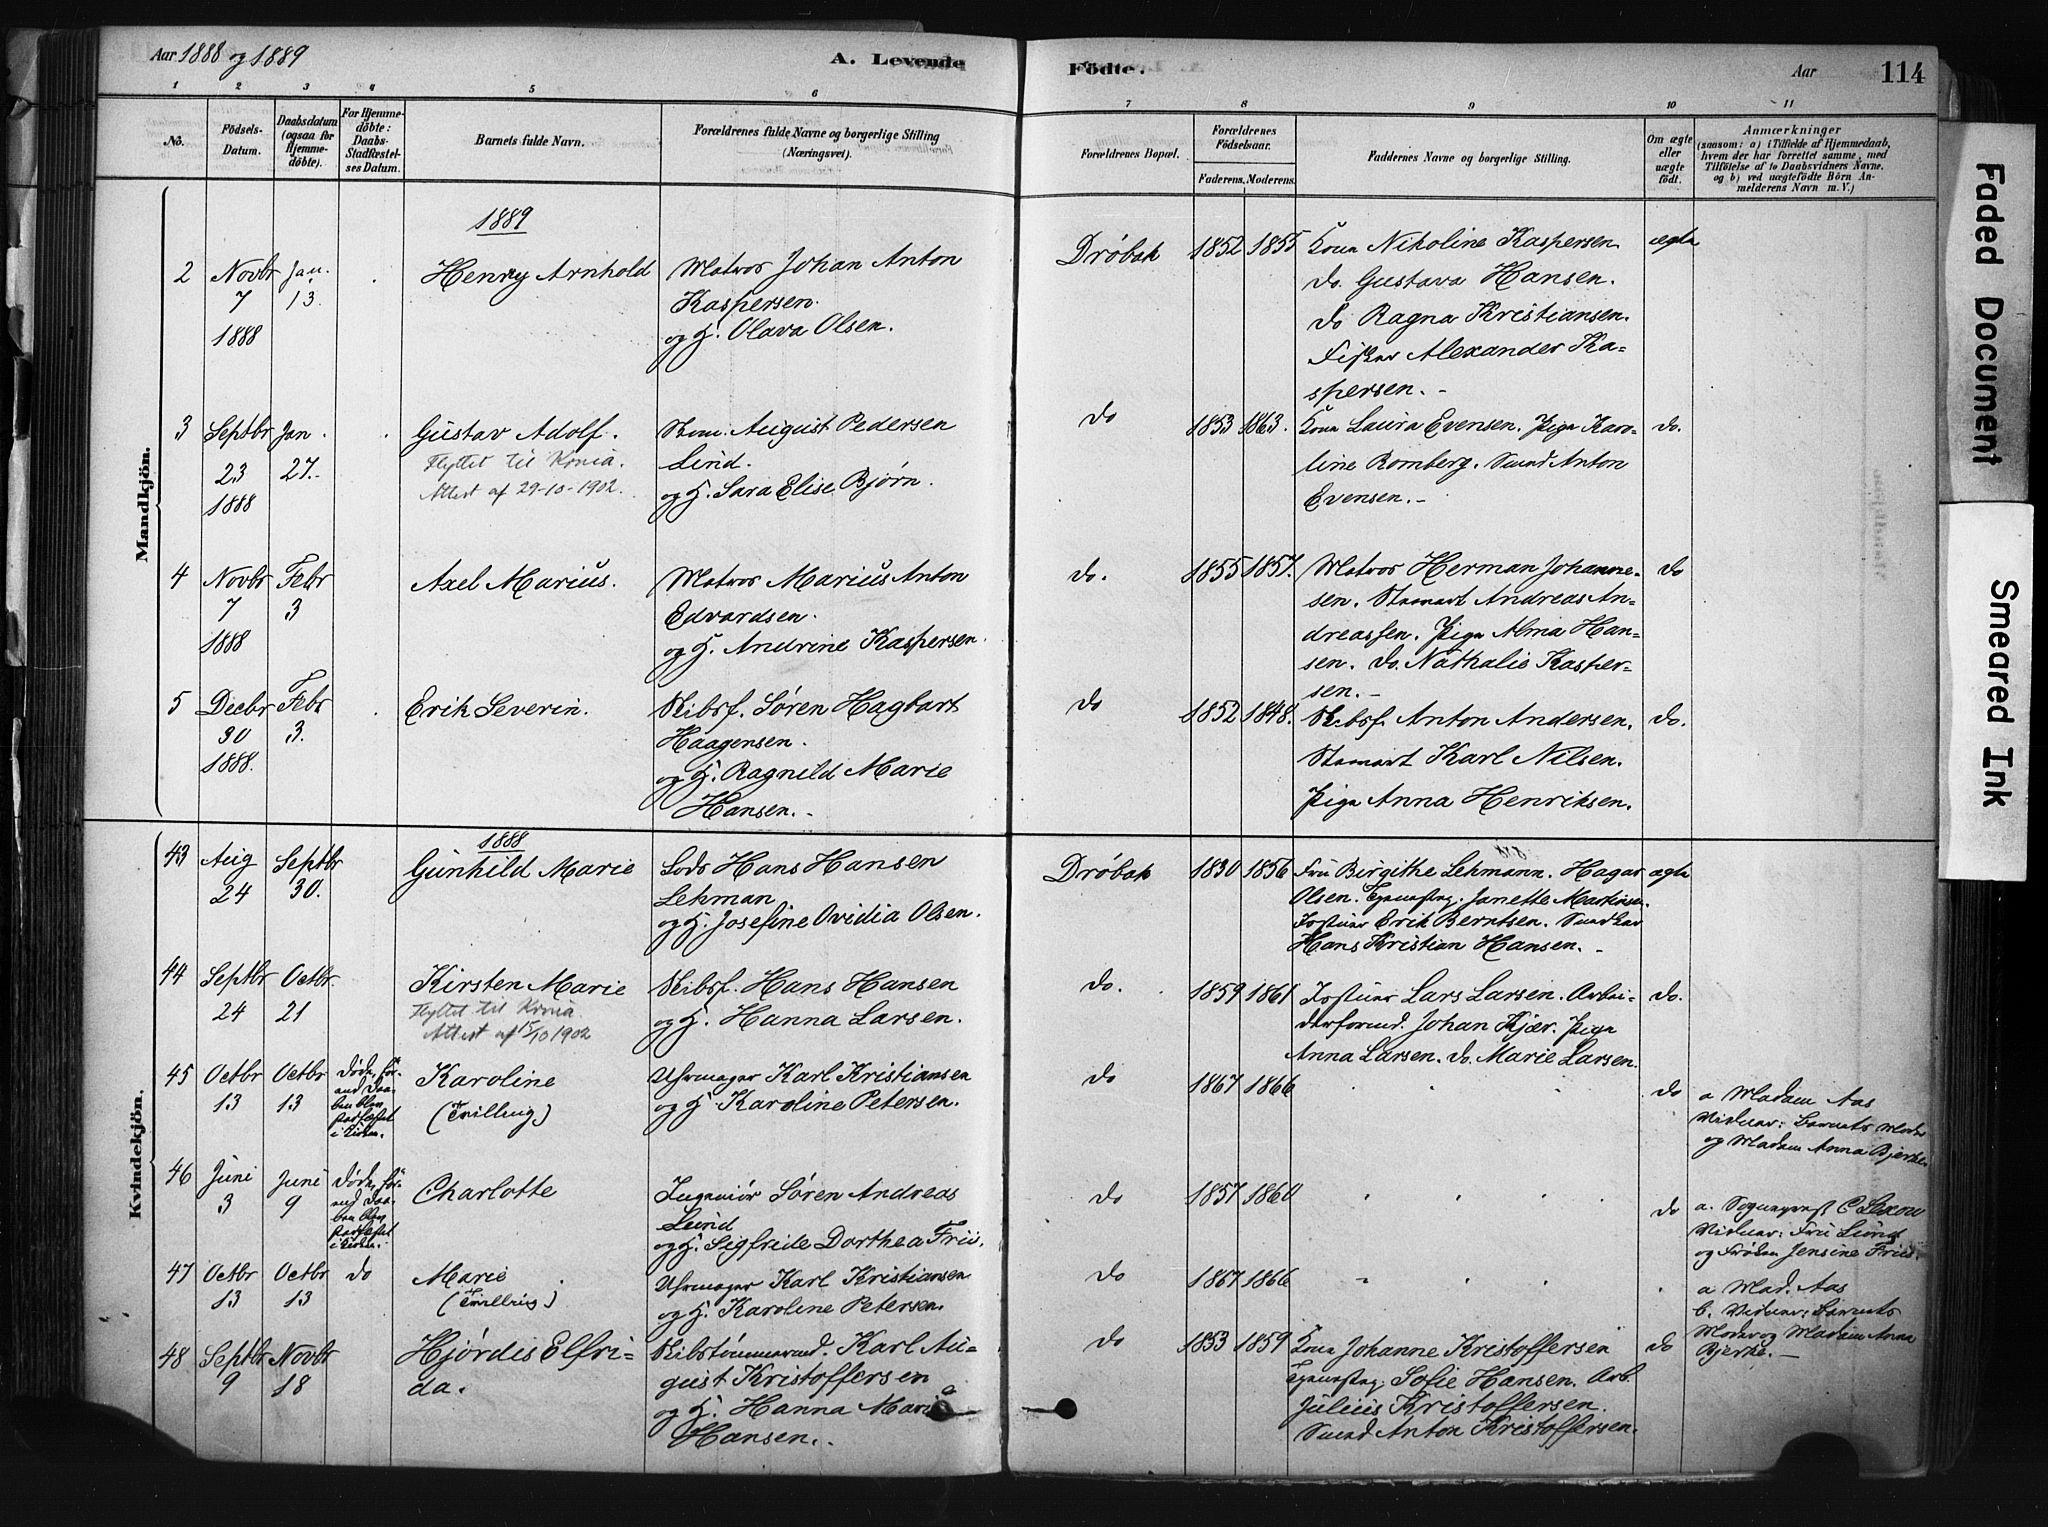 Aar 1888 og 1889
A. Levende
Födte.
Aar
114
1 2 3 4 5 6 7 8 9 10 11
No.
Födsels-Datum.
Daabsdatum (ogsaa for Hjemmedöbte).
For Hjemmedöbte: Daabs-Stadfæstelses Datum.
Barnets fulde Navn.
Forældrenes fulde Navne og borgerlige Stilling (Næringsvei).
Forældrenes Bopæl.
Forældrenes Födselsaar.
Faderens. Moderens.
Faddernes Navne og borgerlige Stilling.
Om ægte eller uægte födt.
Anmærkninger
(saasom: a) i Tilfælde af Hjemmedaab,
hvem der har forrettet samme, med
Tilföielse af to Daabsvidners Navne,
og b) ved uægtefödte Börn An-
melderens Navn m. V.)
Mandkjön.
1889
2 Novbr 7 1888
Jan. 13.
Henry Arnhold
Matros Johan Anton
Kaspersen.
og H. Olava Olsen.
Drøbak 1852 1855
Kona Nikoline Kaspersen.
do. Gustava Hansen.
do Ragna Kristiansen.
Fisker Alexander Ka-
spersen. -
ægte
3 Septbr 23 1888
Jan. 27.
Gustav Adolf.
Flyttet til Krnia.
Attest af 29-10-1902.
August Pedersen
Lind.
og H. Sara Elise Bjørn.
do 1853 1863.
Kona Laura Evensen. Pige Karo-
line Romberg. Anton
Evensen. -
do.
4 Novbr 7 1888
Febr 3
Axel Marius.
Matros Marius Anton
Edvardsen.
og H. Andrine Kaspersen.
do. 1855 1857.
Matros Herman Johanne-
sen. Andreas An-
dreassen. Pige Alma Han-
sen. do. Nathalie Kasper-
sen. -
do
5 Decbr 30 1888.
Febr 3.
Erik Severin.
Skibsf. Søren Hagbart
Haagensen.
og H. Ragnild Marie
Hansen. -
do 1852 1848.
Skibsf. Anton Andersen.
Karl Nilsen.
Pige Anna Henriksen.
do.
Kvindekjön.
1888
43 Aug 24
Septbr 30.
Gunhild Marie
Lods Hans Hansen
Lehman
og H. Josefine Ovidia Olsen.
Drøbak 1830 1856
Fru Birgithe Lehmann. Hagar
Olsen. Janette Martinsen.
Erik Berntsen.
Hans Kristian Hansen. -
ægte
44 Septbr 24
Octbr. 21
Kirsten Marie
Flyttet til Krnia
Attest af 15/10 1902
Skibsf. Hans Hansen
og H. Hanna Larsen.
do. 1859 1861
Lars Larsen. Arbei-
derformd. Johan Kjær. Pige
Anna Larsen. do. Marie Larsen.
do.
45 Octbr 13
Octbr 13
Døde, før-
end Daa-
ben blev
stadfæstet
i Kirken.
Karoline
(Tvilling)
Uhrmager Karl Kristiansen
og H. Karoline Petersen.
do 1867 1866
do
a Madam Aas
Vidner: Barnets Moder
og Madam Anna Bjerke.
46 Juni 3
Juni 9
Døde, før-
end Daa-
ben blev
stadfæstet
i Kirken.
Charlotte
Ingeniør Søren Andreas
Lund
og H. Sigfride Dorthea Friis.
do 1857 1860
do
a. Sogneprest C Lexow
Vidner: Fru Lund
og Frøken Jensine Friis.
47 Octbr 13
Octbr 13
do
Marie
(Tvilling)
Uhrmager Karl Kristiansen
og H. Karoline Petersen.
do 1867 1866
a Mad. Aas
b. Vidner: Barnets
Moder og Madam Anna
Bjerke. -
48 Septbr 9
Novbr 18
Hjørdis Elfri-
da.
Skibstømmermd. Karl Au-
gust Kristoffersen
og H. Hanna Marie
Hansen.
do 1853 1859
Kona Johanne Kristoffersen
Sofie Hansen. Arb.
Julius Kristoffersen.
Anton Kristoffersen.
do
Faded Document
Smeared Ink